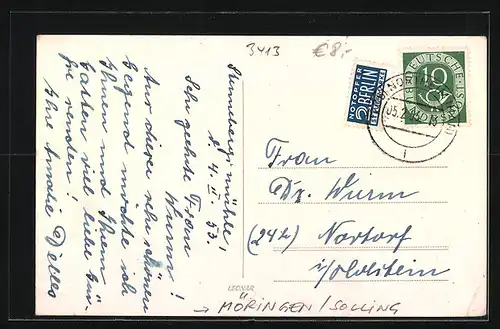 3413 €8,-
Rünneberg'mühle!
d. 4. II 53.
Sehr geehrte Frau
Wurm!
Aus dieser sehr schönen
Gegend möchte ich
Ihnen und Ihrem
Gatten viel liebe Grü-
ße senden!
Ihre Amalie Delles
NOTOPFER
2 BERLIN
STEUERMARKE
DEUTSCHE
10
05.2
Frau
Dr. Wurm
(24b) Nortorf
i/Holstein
LEONAR
→ MÖRINGEN/SOLLING